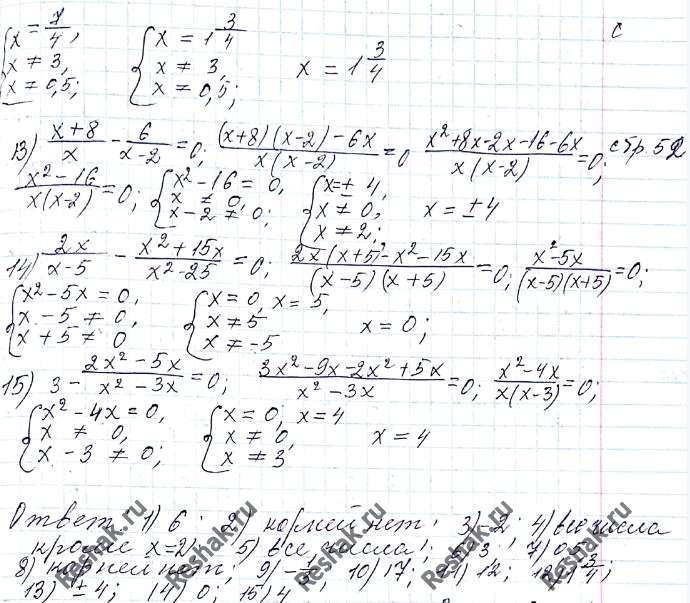 x = 7/4, x = 1 3/4 с
x ≠ 3, x ≠ 3, x = 1 3/4
x ≠ 0,5; x ≠ 0,5;
13) (x+8)/x - 6/(x-2) = 0; ((x+8)(x-2)-6x)/(x(x-2)) = 0 (x²+8x-2x-16-6x)/(x(x-2)) = 0; стр. 52
(x²-16)/(x(x-2)) = 0; { x²-16 = 0, { x = ± 4,
x ≠ 0, x ≠ 0, x = ±4
x-2 ≠ 0; x ≠ 2;
14) 2x/(x-5) - (x²+15x)/(x²-25) = 0; (2x(x+5)-x²-15x)/((x-5)(x+5)) = 0; (x²-5x)/((x-5)(x+5)) = 0;
{ x²-5x = 0, { x = 0, x = 5,
x-5 ≠ 0, x ≠ 5 x = 0;
x+5 ≠ 0 x ≠ -5
15) 3 - (2x²-5x)/(x²-3x) = 0; (3x²-9x-2x²+5x)/(x²-3x) = 0; (x²-4x)/(x(x-3)) = 0;
{ x²-4x = 0, { x = 0; x = 4
x ≠ 0, x ≠ 0, x = 4
x-3 ≠ 0; x ≠ 3
Ответ: 1) 6; 2) корней нет; 3) -2; 4) все числа
кроме x=2; 5) все числа; 6) 3; 7) 0,5;
8) корней нет; 9) 10) 17; 11) 12; 12) 1 3/4;
13) ±4; 14) 0; 15) 4
Reshak.ru Reshak.ru Reshak.ru Reshak.ru